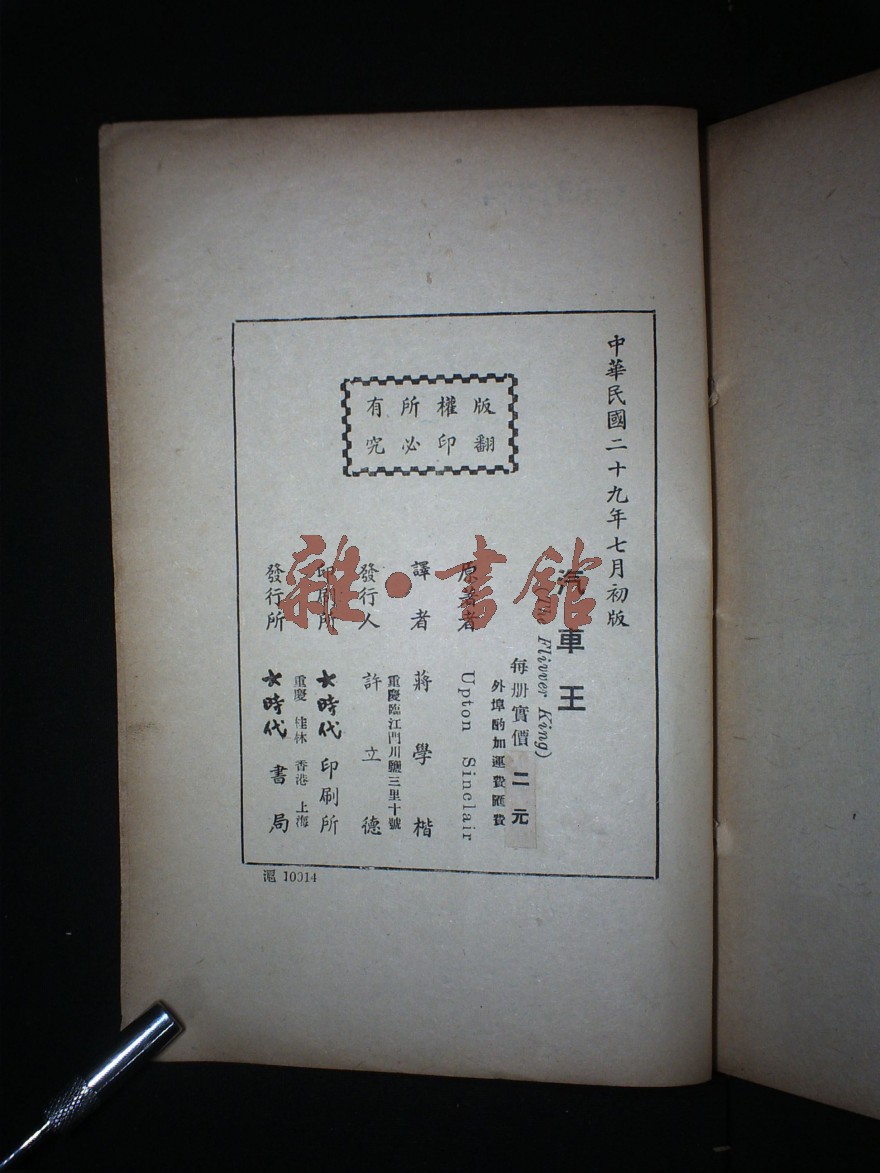 中華民國二十九年七月初版
版權所有
翻印必究
汽車王
Flivver King)
每册實價二元
外埠酌加運費匯費
原著者 Upton Sinclair
譯者 蔣學楷
發行人 許立德
重慶臨江門川鹽三里十號
印刷所 大時代印刷所
發行所 大時代書局
重慶 桂林 香港 上海
滬 10014
雜·書館